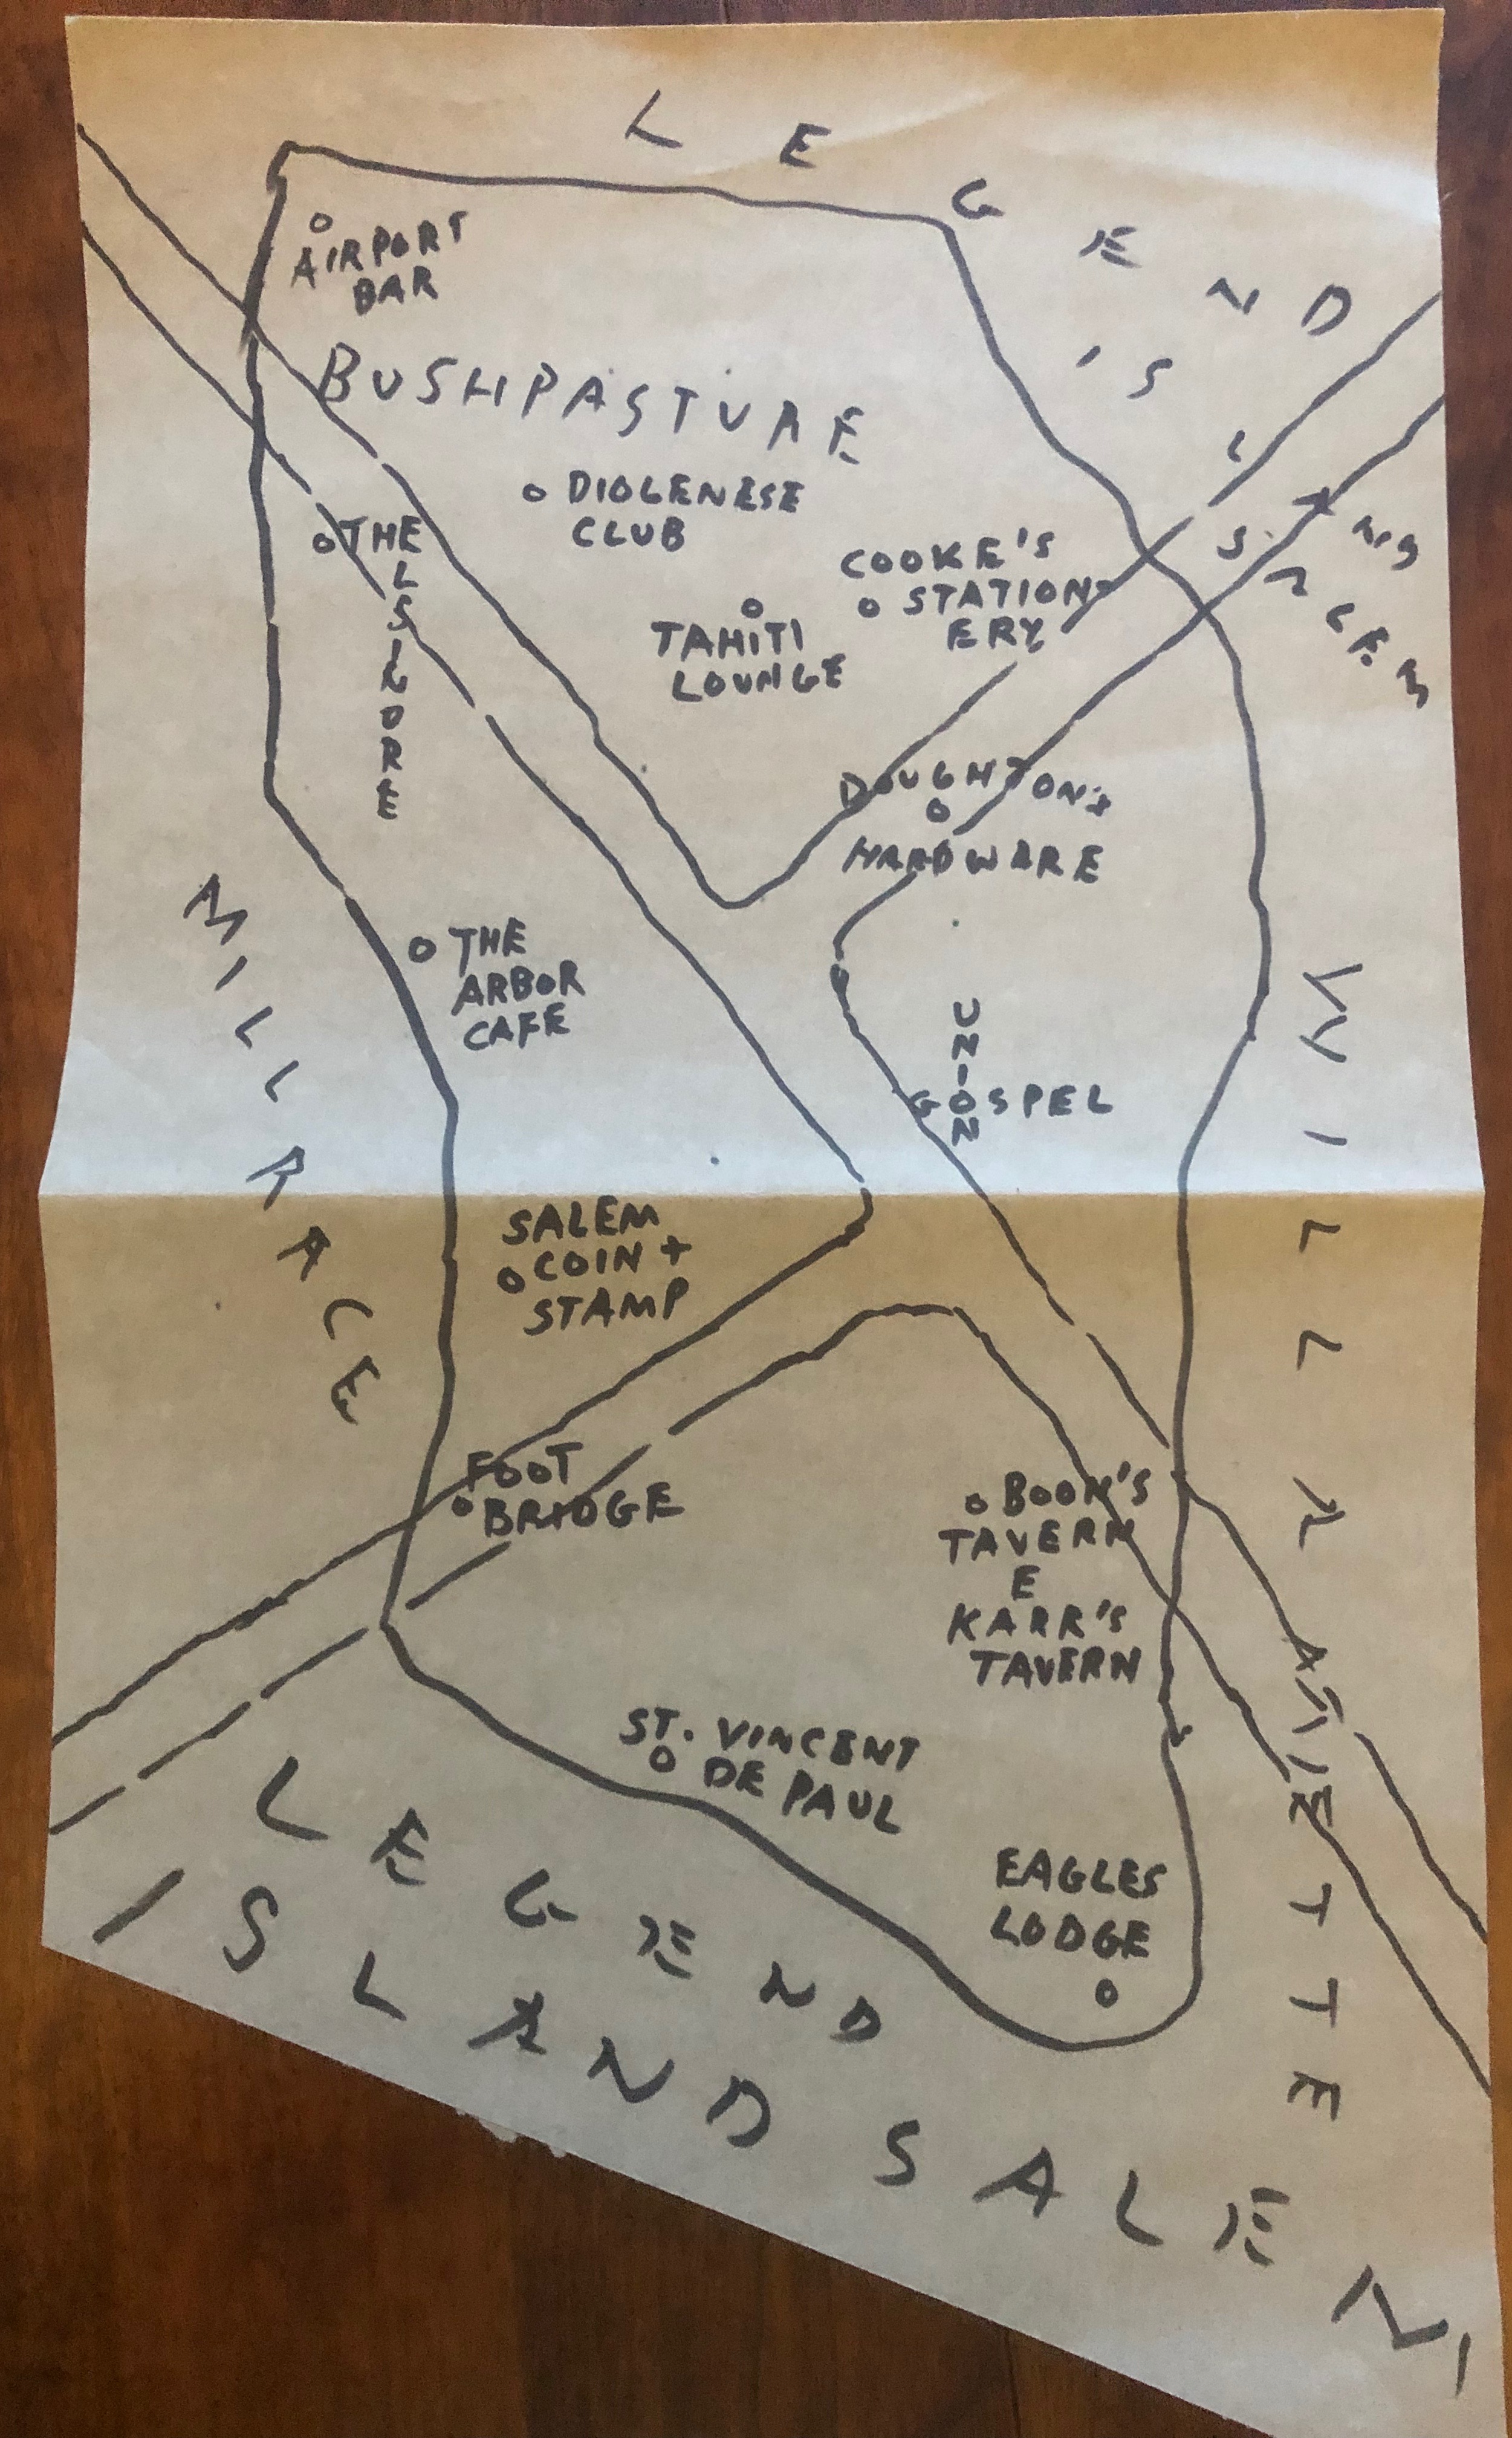 LEGEND
ISLAND SALEM
AIRPORT
BAR
BUSHPASTURE
DIOGENESE
CLUB
THE
ELSINORE
COOKE'S
STATION-
ERY
TAHITI
LOUNGE
DOUGHTON+
HARDWARE
THE
ARBOR
CAFE
MILLRACE
UNION
GOSPEL
WILLAMETTE
SALEM
COIN +
STAMP
FOOT
BRIDGE
BOON'S
TAVERN
E
KARR'S
TAVERN
ST. VINCENT
DE PAUL
EAGLES
LODGE
LEGEND
ISLAND SALEM